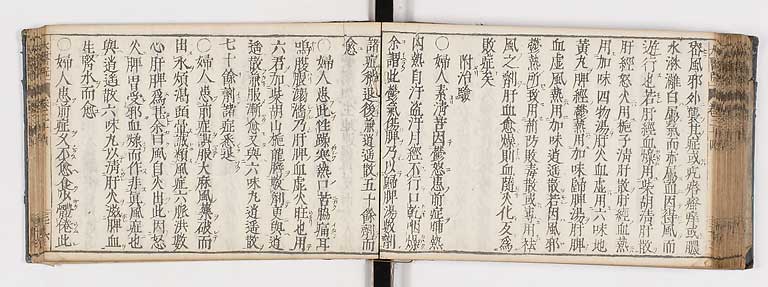 容風邪外襲其症或疙瘩痛癢或膿
水淋漓白屬氣而赤屬血因得風而
遊行也若肝經血燥用柴胡清肝散
肝經怒火用梔子清肝散肝經血熱
用加味四物湯肝火血虛用六味地
黃丸肝經鬱熱用加味歸脾湯肝脾
血虛風熱用加味逍遙散若因風邪
鬱熱所致用荊防敗毒散或專用祛
風之劑肝血愈燥則血隨火化反為
敗症矣
附治驗
〇婦人素清苦因鬱怒患前症晡熱
內熱自汗盜汗月經不行口乾咽燥
余謂此鬱氣傷脾乃以歸脾湯數劑
諸症稍退後兼逍遙散五十餘劑而
愈
〇婦人患此性躁寒熱口苦脇痛耳
鳴腹脹溺濇乃肝脾血虛火旺也用
六君加柴胡山梔龍膽數劑更與逍
遙散兼服漸愈又與六味丸逍遙散
七十餘劑諸症悉退
〇婦人患前症誤服大麻風藥破而
出水煩渴頭暈誠類風症六脉洪數
心肝脾爲甚余曰風自火出此因怒
火脾胃受邪血燥而作非眞風症也
與逍遙散六味丸以清肝火滋脾血
生腎水而愈
〇婦人患前症又不愈食少體倦此